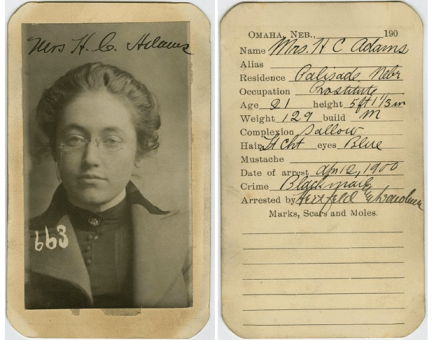 Mrs H. C. Adams
663
OMAHA, NEB., 190
Name Mrs. H C Adams
Alias
Residence Palisade, Nebr
Occupation Prostitute
Age 21 height 5ft 1 1/3 in
Weight 129 build M
Complexion Sallow
Hair Lt Cht eyes Blue
Mustache
Date of arrest Apr 12, 1900
Crime Blackmail
Arrested by
Marks, Scars and Moles.